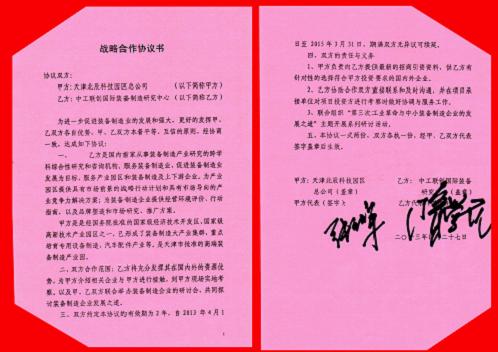 战略合作协议书
协议双方：
甲方：天津北辰科技园区总公司 （以下简称甲方）
乙方：中工联创国际装备制造研究中心（以下简称乙方）
为进一步促进装备制造业的发展和强大，更好的发挥甲、
乙双方各自优势，甲、乙双方本着平等、互信的原则，经协商
一致，达成如下协议：
一、 乙方是国内首家从事装备制造产业研究的跨学
科综合性研究和咨询机构，服务装备制造业，促进装备制造业
发展为目标，服务产业园区和装备制造及上下游企业，为产业
园区提供具有市场前景的战略行动计划和具有市场导向的产
业竞争力解决方案；为装备制造企业提供经营环境评价、行动
指南，以及品牌塑造和市场研究、推广方案。
甲方是经国务院批准的国家级经济技术开发区、国家级
高新技术产业园区之一，已形成了装备制造大产业集群，重点
培育专用设备制造、汽车配件产业等，是天津市优雅的高端装
备制造产业园。
二、双方合作范围：乙方将充分发挥其在国内外的资源优
势，为甲方介绍相关企业与甲方进行接触，到甲方现场实地考
察，以及甲、乙双方联合举办装备制造企业的研讨会，共同探
讨装备制造企业发展之道。
三、双方约定本协议的有效期为 2 年，自 2013 年 4 月 1
1
日至 2015 年 3 月 31 日，期满双方无异议可续延。
四、双方的责任与义务
1、甲方负责向乙方提供最新的招商引资资料，供乙方有
针对性的选择符合甲方投资要求的国内外企业。
2、乙方协助合作双方直接联系和及时沟通，并在项目承
接单位对项目投资方进行考察时做好协调与服务工作。
3、联合组织“第三次工业革命与中小装备制造企业的发
展之道”主题开展系列研讨活动。
五、本协议一式两份，双方各执一份，经甲、乙双方代表
签字盖章后生效。
甲方：天津北辰科技园区 乙方：中工联创国际装备
总公司（盖章） 研究 （盖章）
甲方代表（签字）： 乙方代
二〇一三年 二十七日